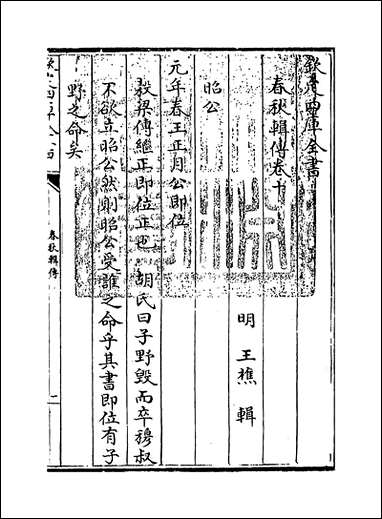 欽定四庫全書
春秋輯傳卷十
明 王樵 輯
昭公
元年春王正月公即位
穀梁傳繼正即位正也 胡氏曰子野毀而卒穆叔
不欲立昭公然則昭公受誰之命乎其書即位有子
野之命矣
春秋輯傳